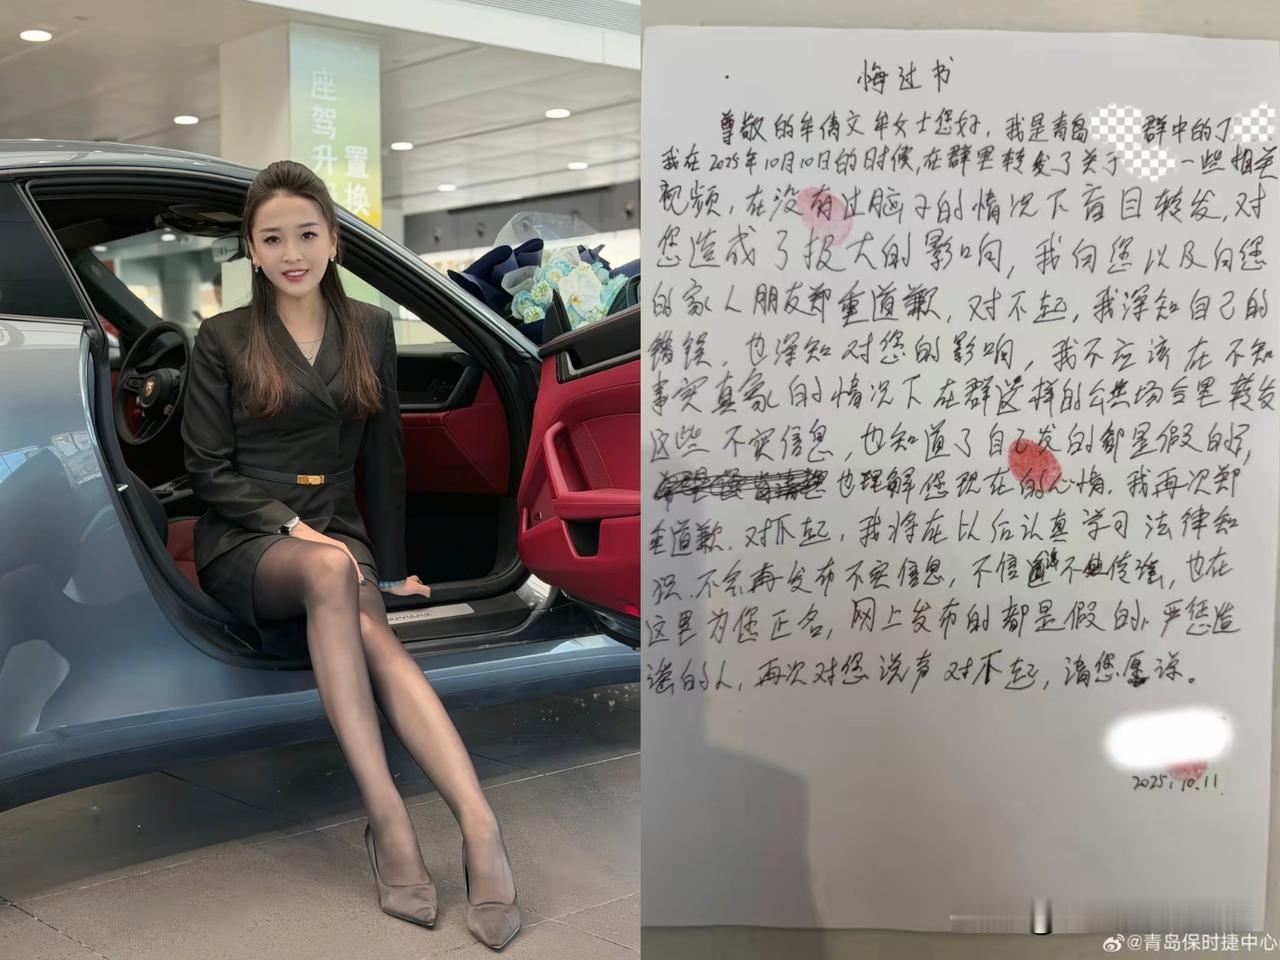 座驾升
置换
悔过书
尊敬的牟倩文牟女士您好,我是青岛 群中的丁
我在2025年10月10日的时候,在群里转发了关于 一些相关
视频,在没有过脑子的情况下盲目转发,对
您造成了极大的影响,我向您以及向您
的家人朋友郑重道歉,对不起,我深知自己的
错误,也深知对您的影响,我不应该在不知
事实真象的情况下在群这样的公共场合里转发
这些不实信息,也知道了自己发的都是假的,
也理解您现在的心情.我再次郑
重道歉.对不起,我将在以后认真学习法律知
识.不会再发布不实信息,不信谣不传谣,也在
这里为您正名,网上发布的都是假的,严惩造
谣的人,再次对您说声对不起,请您原谅。
2025.10.11
@青岛保时捷中心